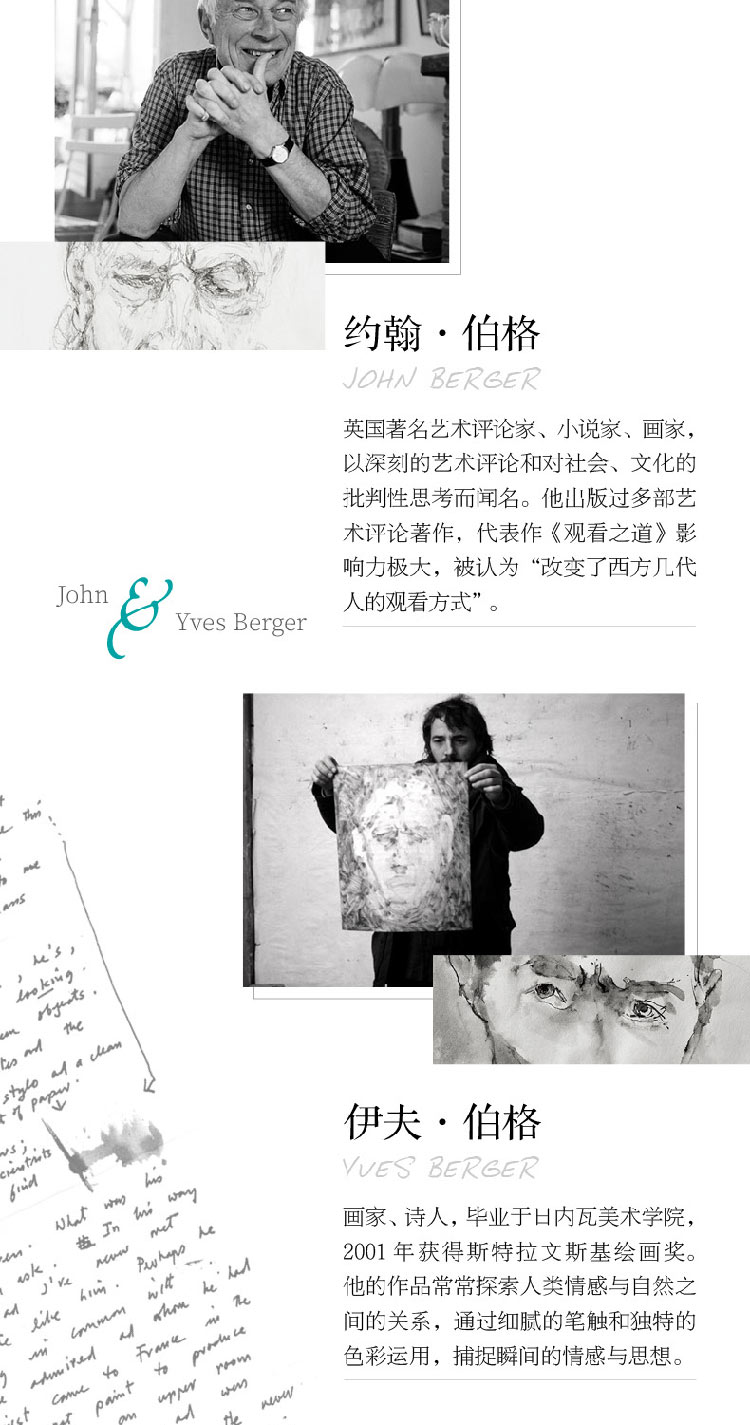 约翰·伯格
JOHN BERGER
英国著名艺术评论家、小说家、画家，
以深刻的艺术评论和对社会、文化的
批判性思考而闻名。他出版过多部艺
术评论著作，代表作《观看之道》影
响力极大，被认为“改变了西方几代
人的观看方式”。
John & Yves Berger
this
to me
he's,
looking
objects.
the
stylo ad a clean
of paper.
find
What was his
ask. In his way
ad I've never met
like him. Perhaps he
in common with
admired ad whom he had
come to France in the
paint to produce
an upper room
ad was
the never
伊夫·伯格
YVES BERGER
画家、诗人，毕业于日内瓦美术学院，
2001 年获得斯特拉文斯基绘画奖。
他的作品常常探索人类情感与自然之
间的关系，通过细腻的笔触和独特的
色彩运用，捕捉瞬间的情感与思想。